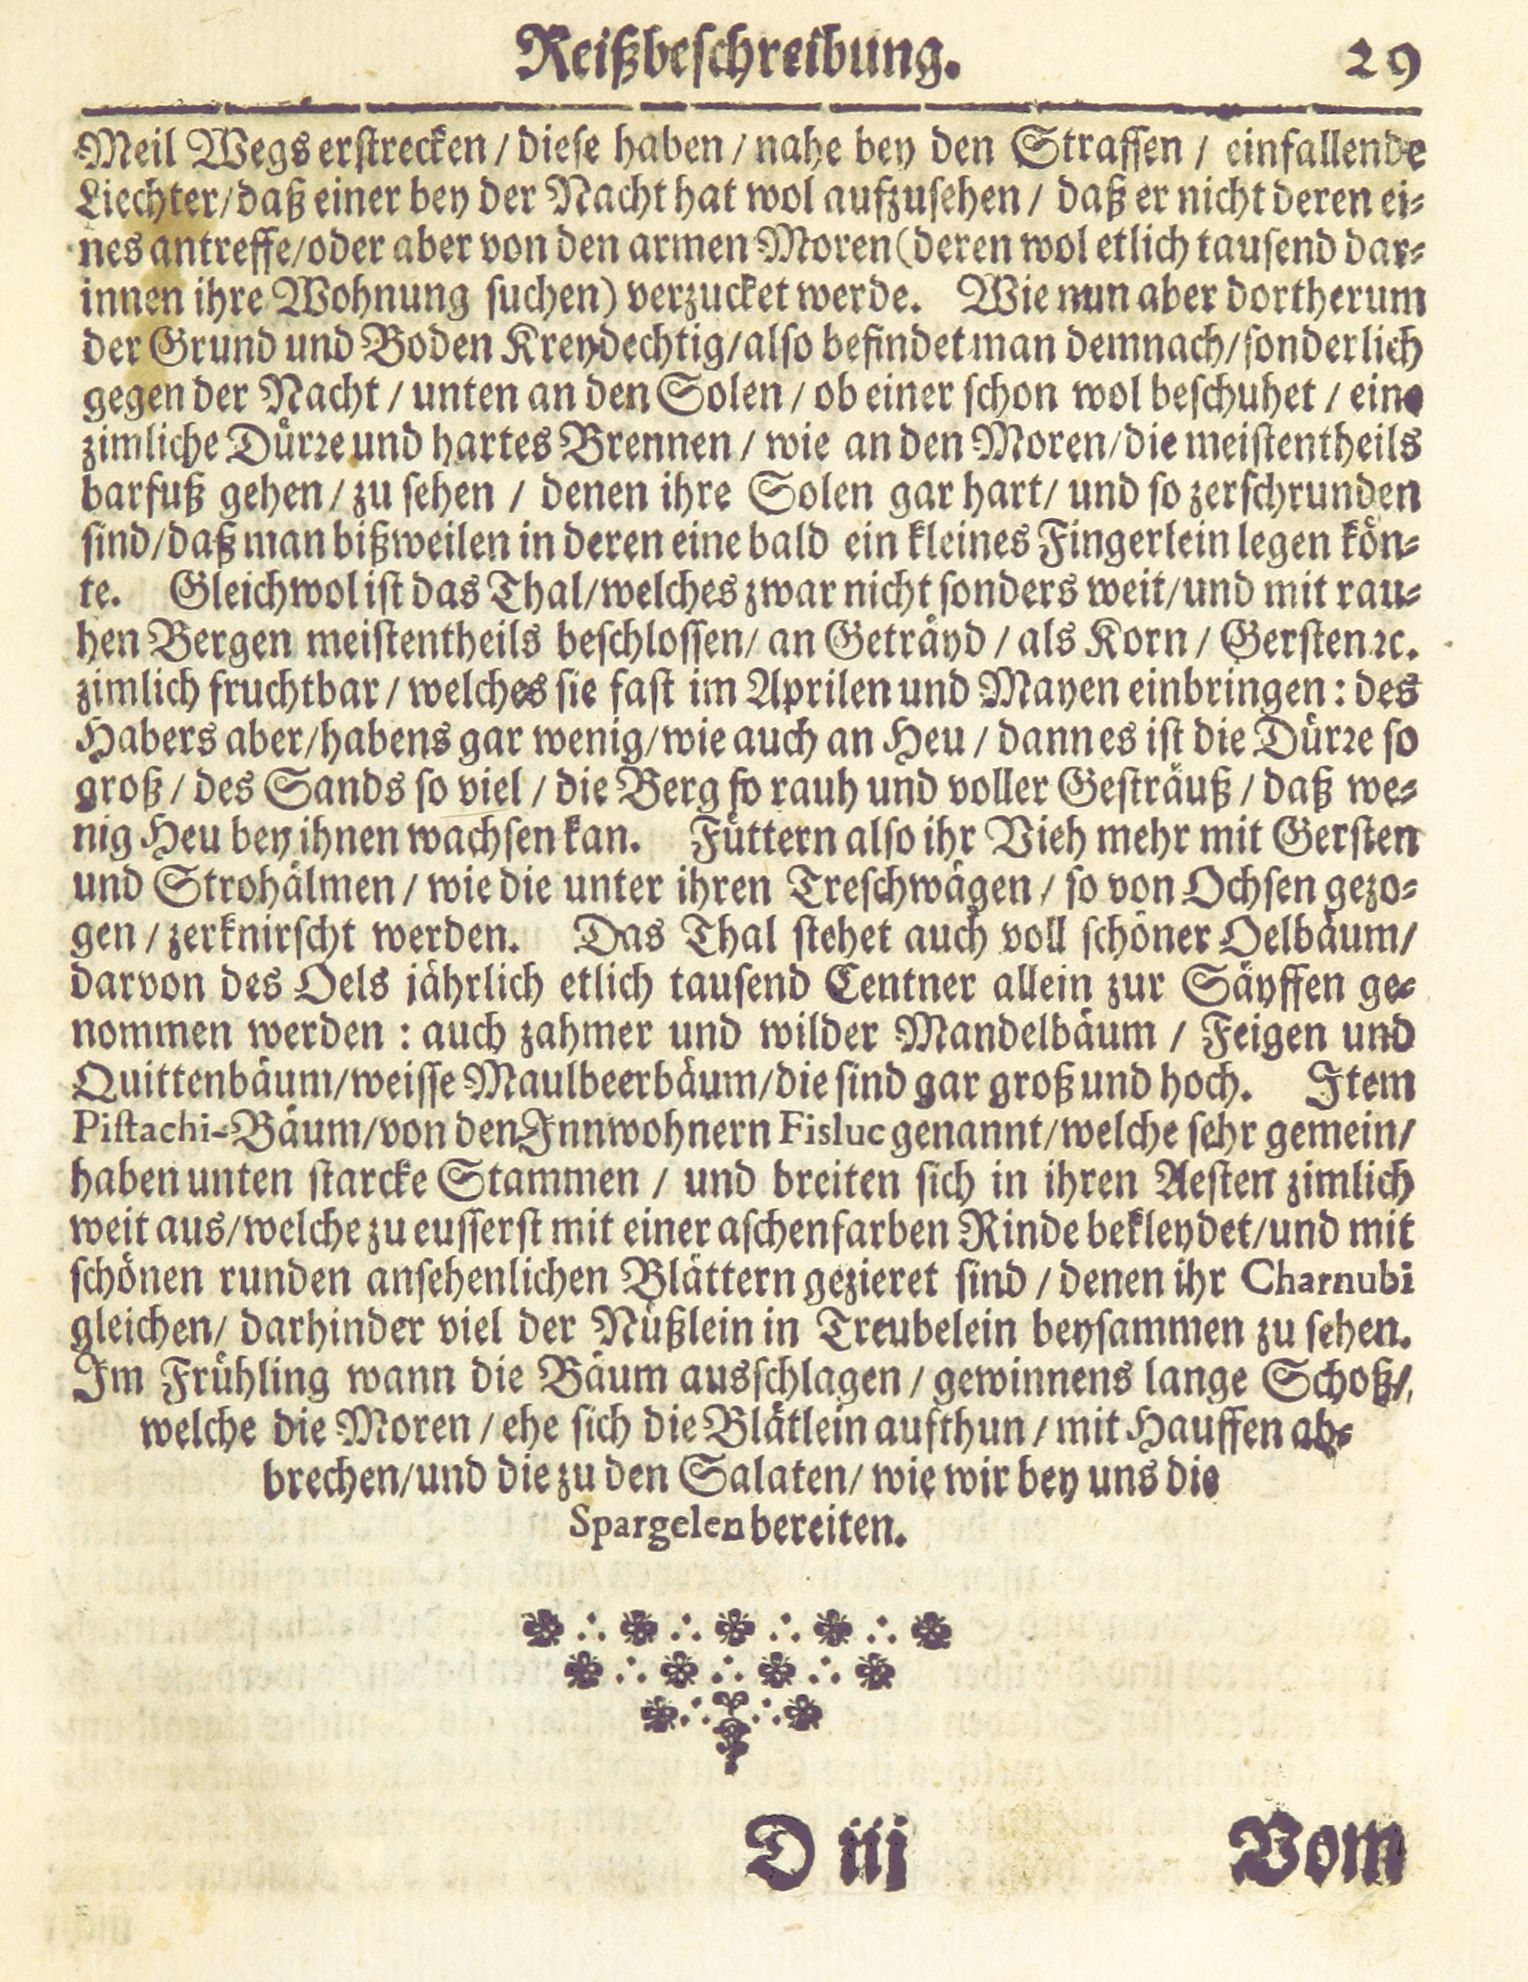 Reißbeschreibung. 29
Meil Wegs erstrecken / diese haben / nahe bey den Strassen / einfallende
Liechter/daß einer bey der Nacht hat wol aufzusehen / daß er nicht deren ei-
nes antreffe/oder aber von den armen Moren (deren wol etlich tausend dar-
innen ihre Wohnung suchen) verzucket werde. Wie nun aber dortherum
der Grund und Boden Kreydechtig/also befindet man demnach/sonderlich
gegen der Nacht / unten an den Solen / ob einer schon wol beschuhet / eine
zimliche Dürre und hartes Brennen / wie an den Moren/die meistentheils
barfuß gehen / zu sehen / denen ihre Solen gar hart/ und so zerschrunden
sind/daß man bißweilen in deren eine bald ein kleines Fingerlein legen kön-
te. Gleichwol ist das Thal/welches zwar nicht sonders weit/und mit rau-
hen Bergen meistentheils beschlossen/ an Geträyd / als Korn / Gersten ꝛc.
zimlich fruchtbar / welches sie fast im Aprilen und Mayen einbringen : des
Habers aber/habens gar wenig/wie auch an Heu / dann es ist die Dürre so
groß / des Sands so viel / die Berg so rauh und voller Gesträuß / daß we-
nig Heu bey ihnen wachsen kan. Füttern also ihr Vieh mehr mit Gersten
und Strohälmen / wie die unter ihren Treschwägen / so von Ochsen gezo-
gen / zerknirscht werden. Das Thal stehet auch voll schöner Oelbäum/
darvon des Oels jährlich etlich tausend Centner allein zur Säyffen ge-
nommen werden : auch zahmer und wilder Mandelbäum / Feigen und
Quittenbäum/weisse Maulbeerbäum/die sind gar groß und hoch. Item
Pistachi-Bäum/von den Innwohnern Fisluc genannt/welche sehr gemein/
haben unten starcke Stammen / und breiten sich in ihren Aesten zimlich
weit aus/welche zu eusserst mit einer aschenfarben Rinde bekleydet/und mit
schönen runden ansehenlichen Blättern gezieret sind / denen ihr Charnubi
gleichen/ darhinder viel der Nüßlein in Treubelein beysammen zu sehen.
Im Frühling wann die Bäum ausschlagen / gewinnens lange Schoß/
welche die Moren / ehe sich die Blätlein aufthun / mit Hauffen ab-
brechen/und die zu den Salaten/ wie wir bey uns die
Spargelen bereiten.
D iij Vom